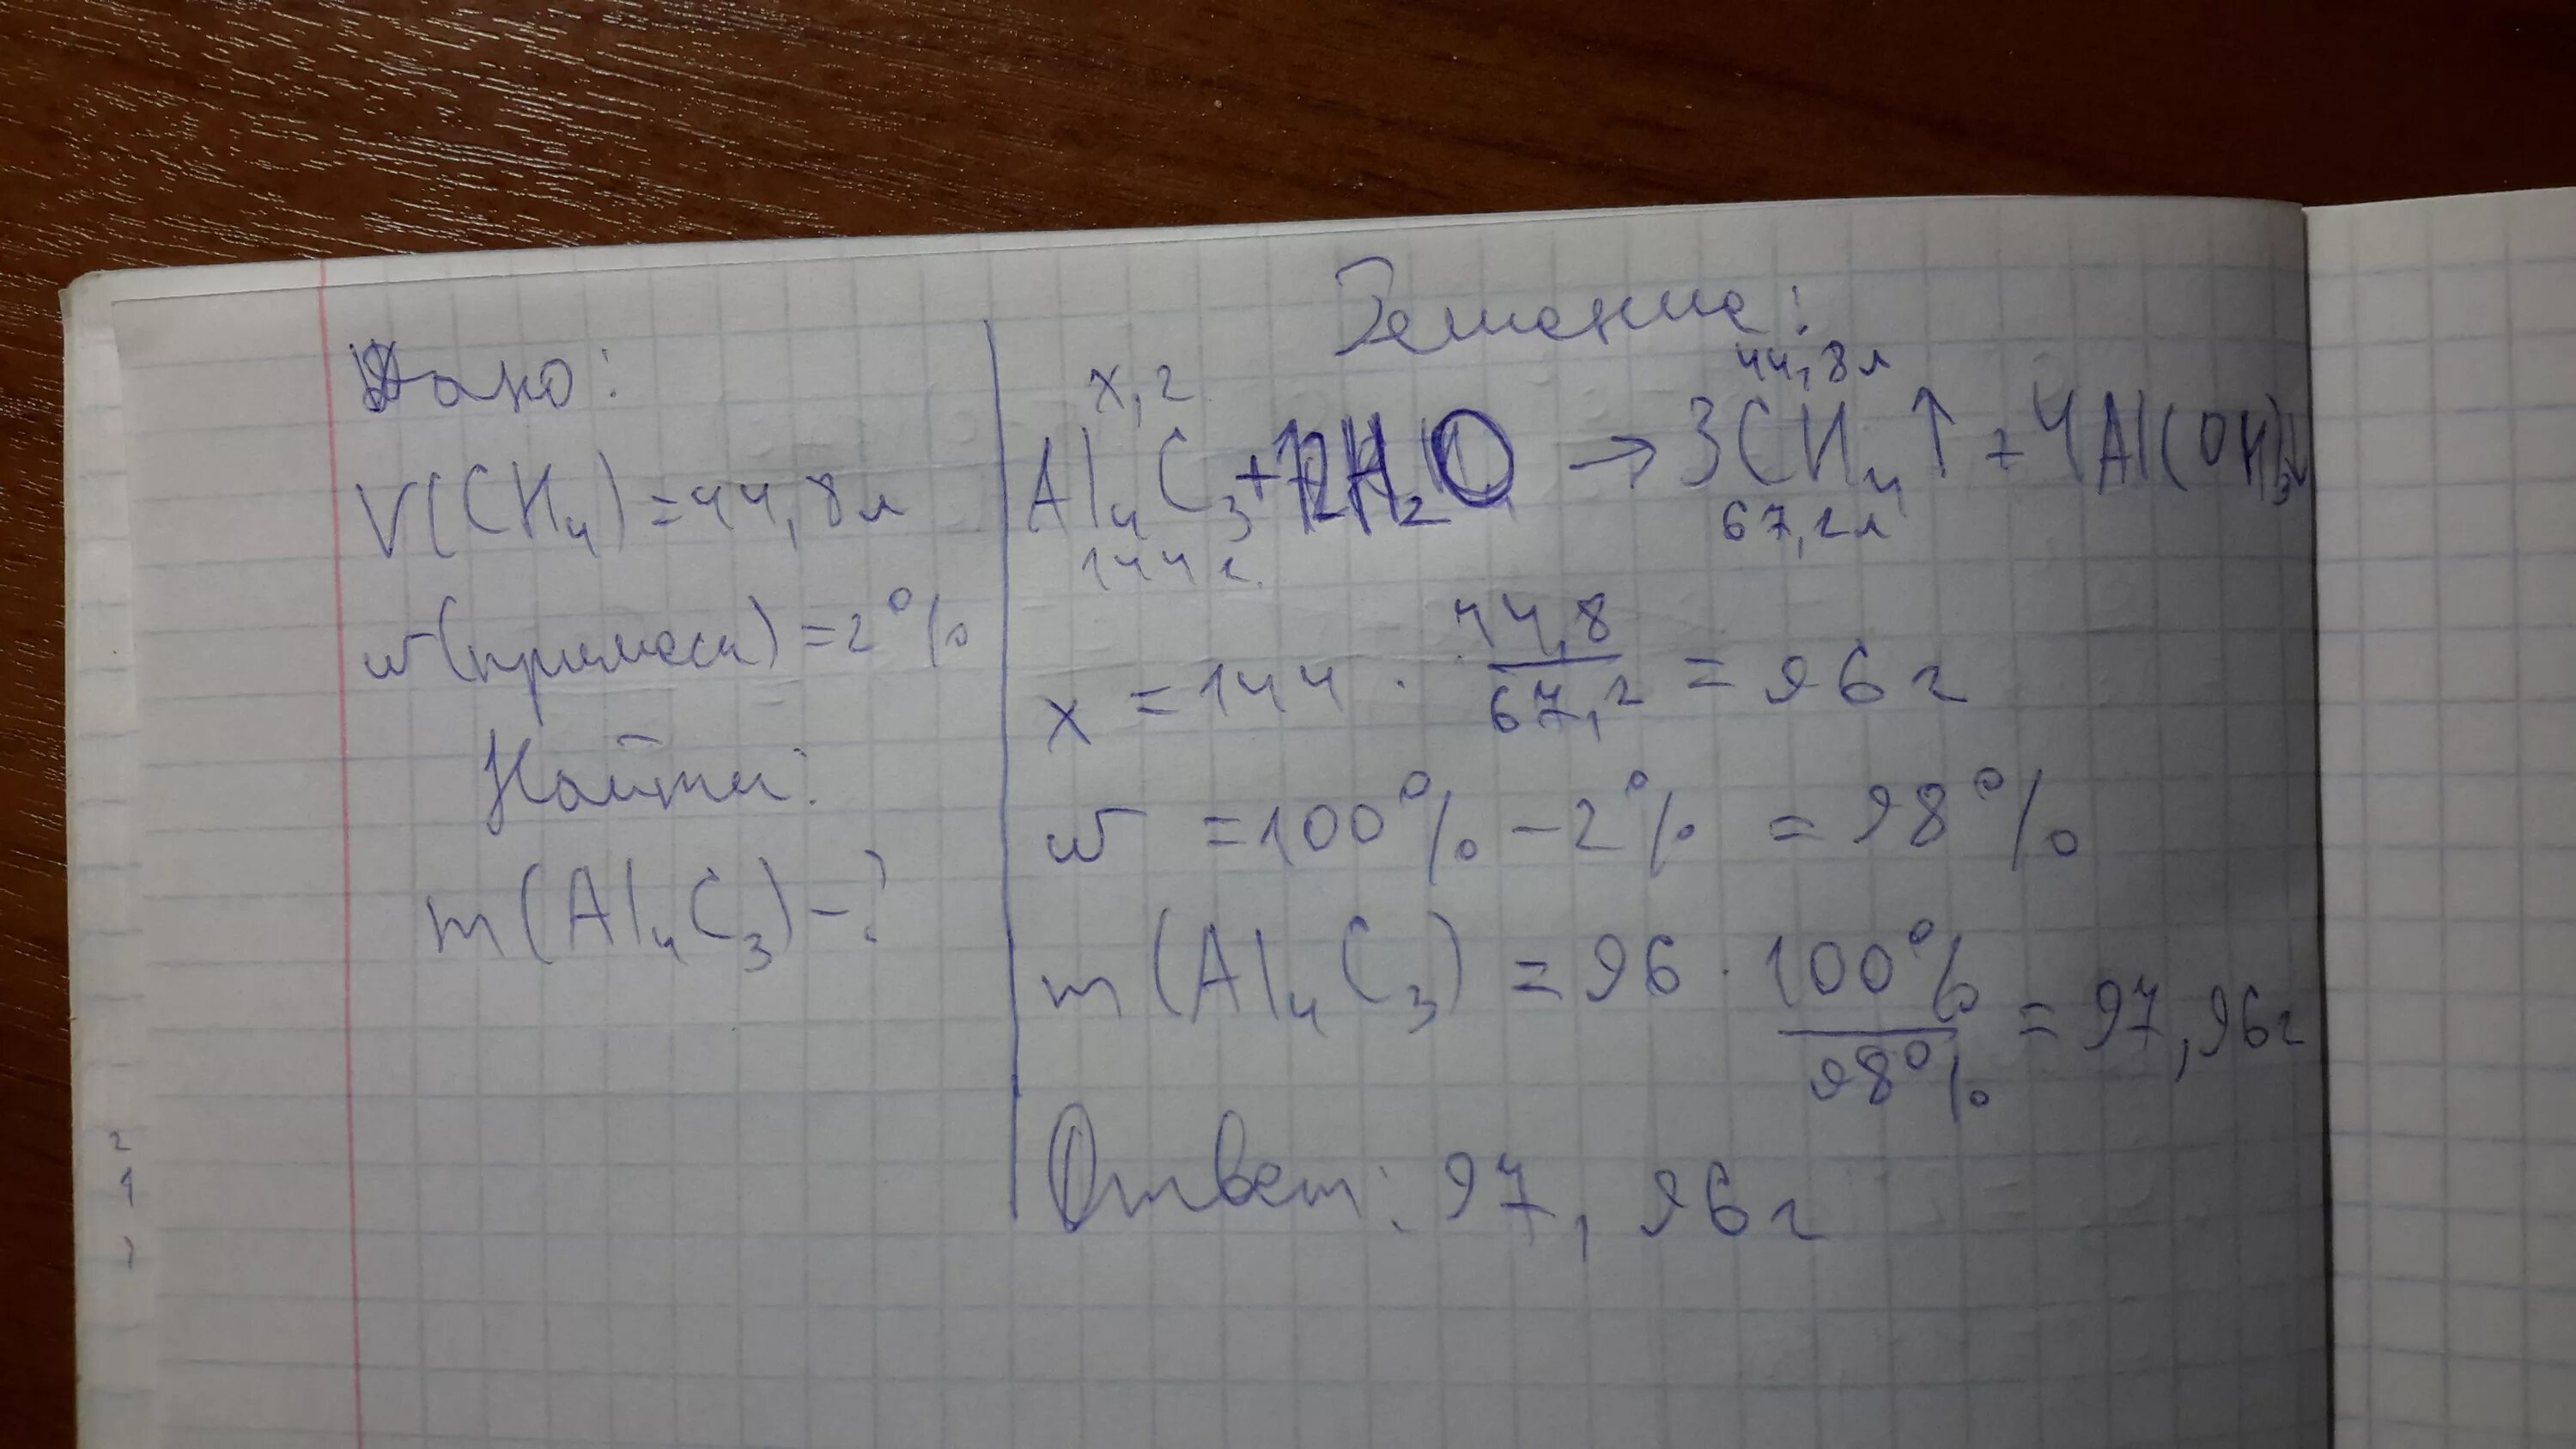 Дано:
V(CH₄) = 44,8л
w(примеси) = 2%
Найти:
m(Al₄C₃) - ?
Решение:
x, г 44,8л
Al₄C₃ + 12H₂O → 3CH₄↑ + 4Al(OH)₃↓
144 г. 67,2л
x = 144 · 44,8/67,2 = 96 г
w = 100% - 2% = 98%
m(Al₄C₃) = 96 · 100%/98% = 97,96г
Ответ: 97,96г
2
1